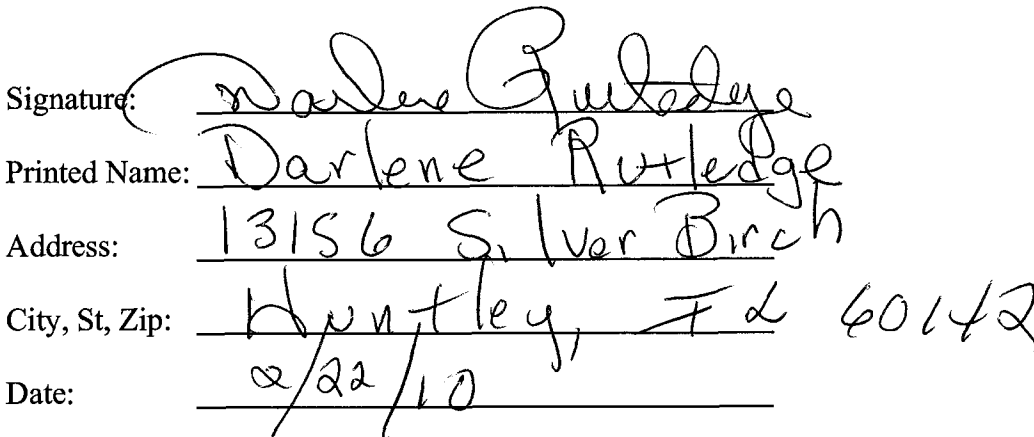 Signature: Darlene Rutledge
Printed Name: Darlene Rutledge
Address: 13156 Silver Birch
City, St, Zip: Huntley, IL 60142
Date: 2/22/10